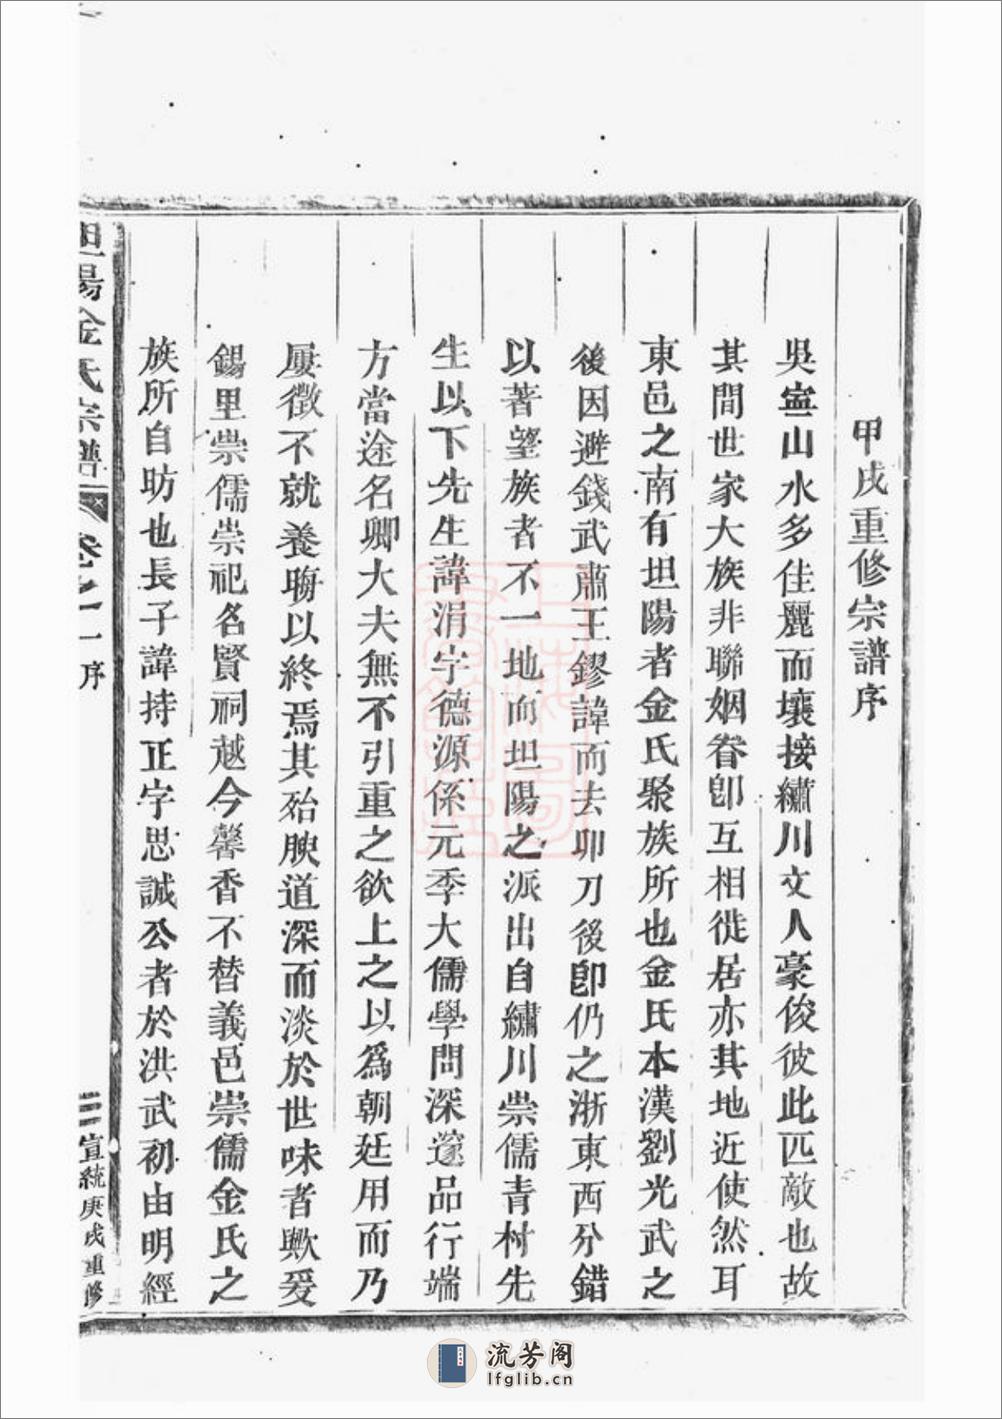 甲戌重修宗譜序
吳寍山水多佳麗而壤接繡川文人豪俊彼此匹敵也故
其間世家大族非聯姻眷卽互相徙居亦其地近使然耳
東邑之南有坦陽者金氏聚族所也金氏本漢劉光武之
後因避錢武肅王鏐諱而去卯刀後卽仍之浙東西分錯
以著望族者不一地而坦陽之派出自繡川崇儒青村先
生以下先生諱涓字德源係元季大儒學問深邃品行端
方當途名卿大夫無不引重之欲上之以爲朝廷用而乃
屢徵不就養晦以終焉其殆腴道深而淡於世味者歟爰
錫里崇儒崇祀名賢祠越今馨香不替義邑崇儒金氏之
族所自昉也長子諱持正字思誠公者於洪武初由明經
坦陽金氏宗譜
卷之一
序
二
宣統庚戌重修
上海圖
流芳阁
lfglib.cn